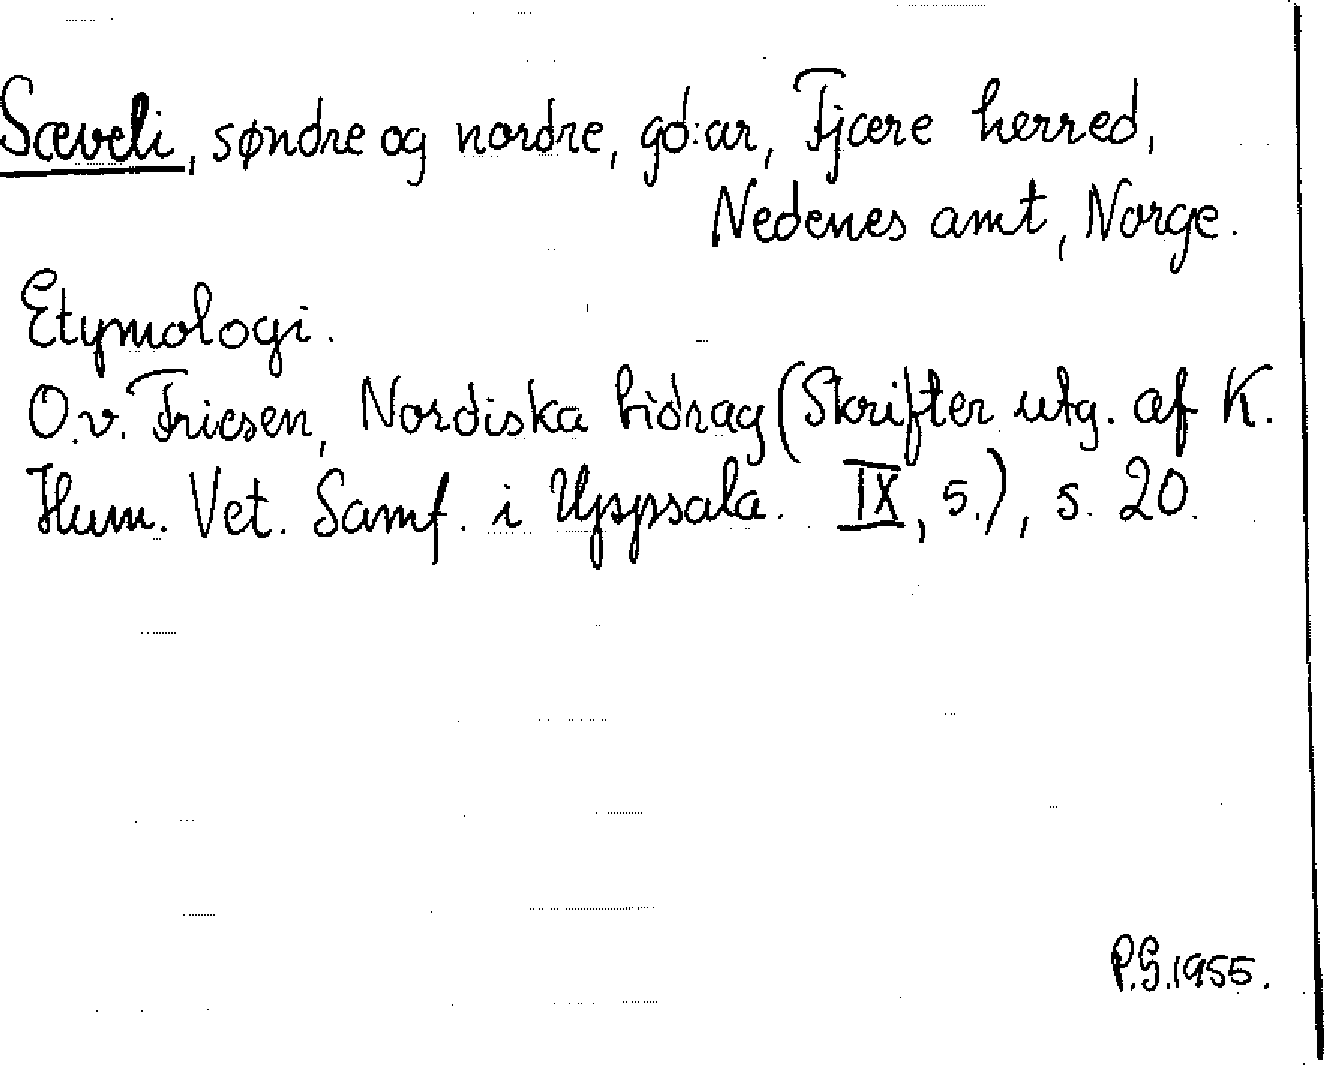 Sæveli, søndre og nordre, gd:ar, Fjære herred,
Nedenes amt, Norge.
Etymologi.
O.v. Friesen, Nordiska bidrag (Skrifter utg. af K.
Hum. Vet. Samf. i Uppsala. IX, 5.), s. 20.
P.G.1955.